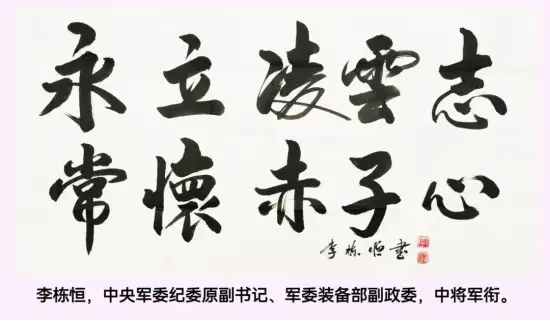 永立凌雲志
常懷赤子心
李栋恒書
李栋恒，中央军委纪委原副书记、军委装备部副政委，中将军衔。